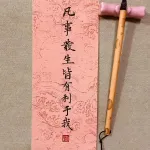 凡事發生皆有利于我